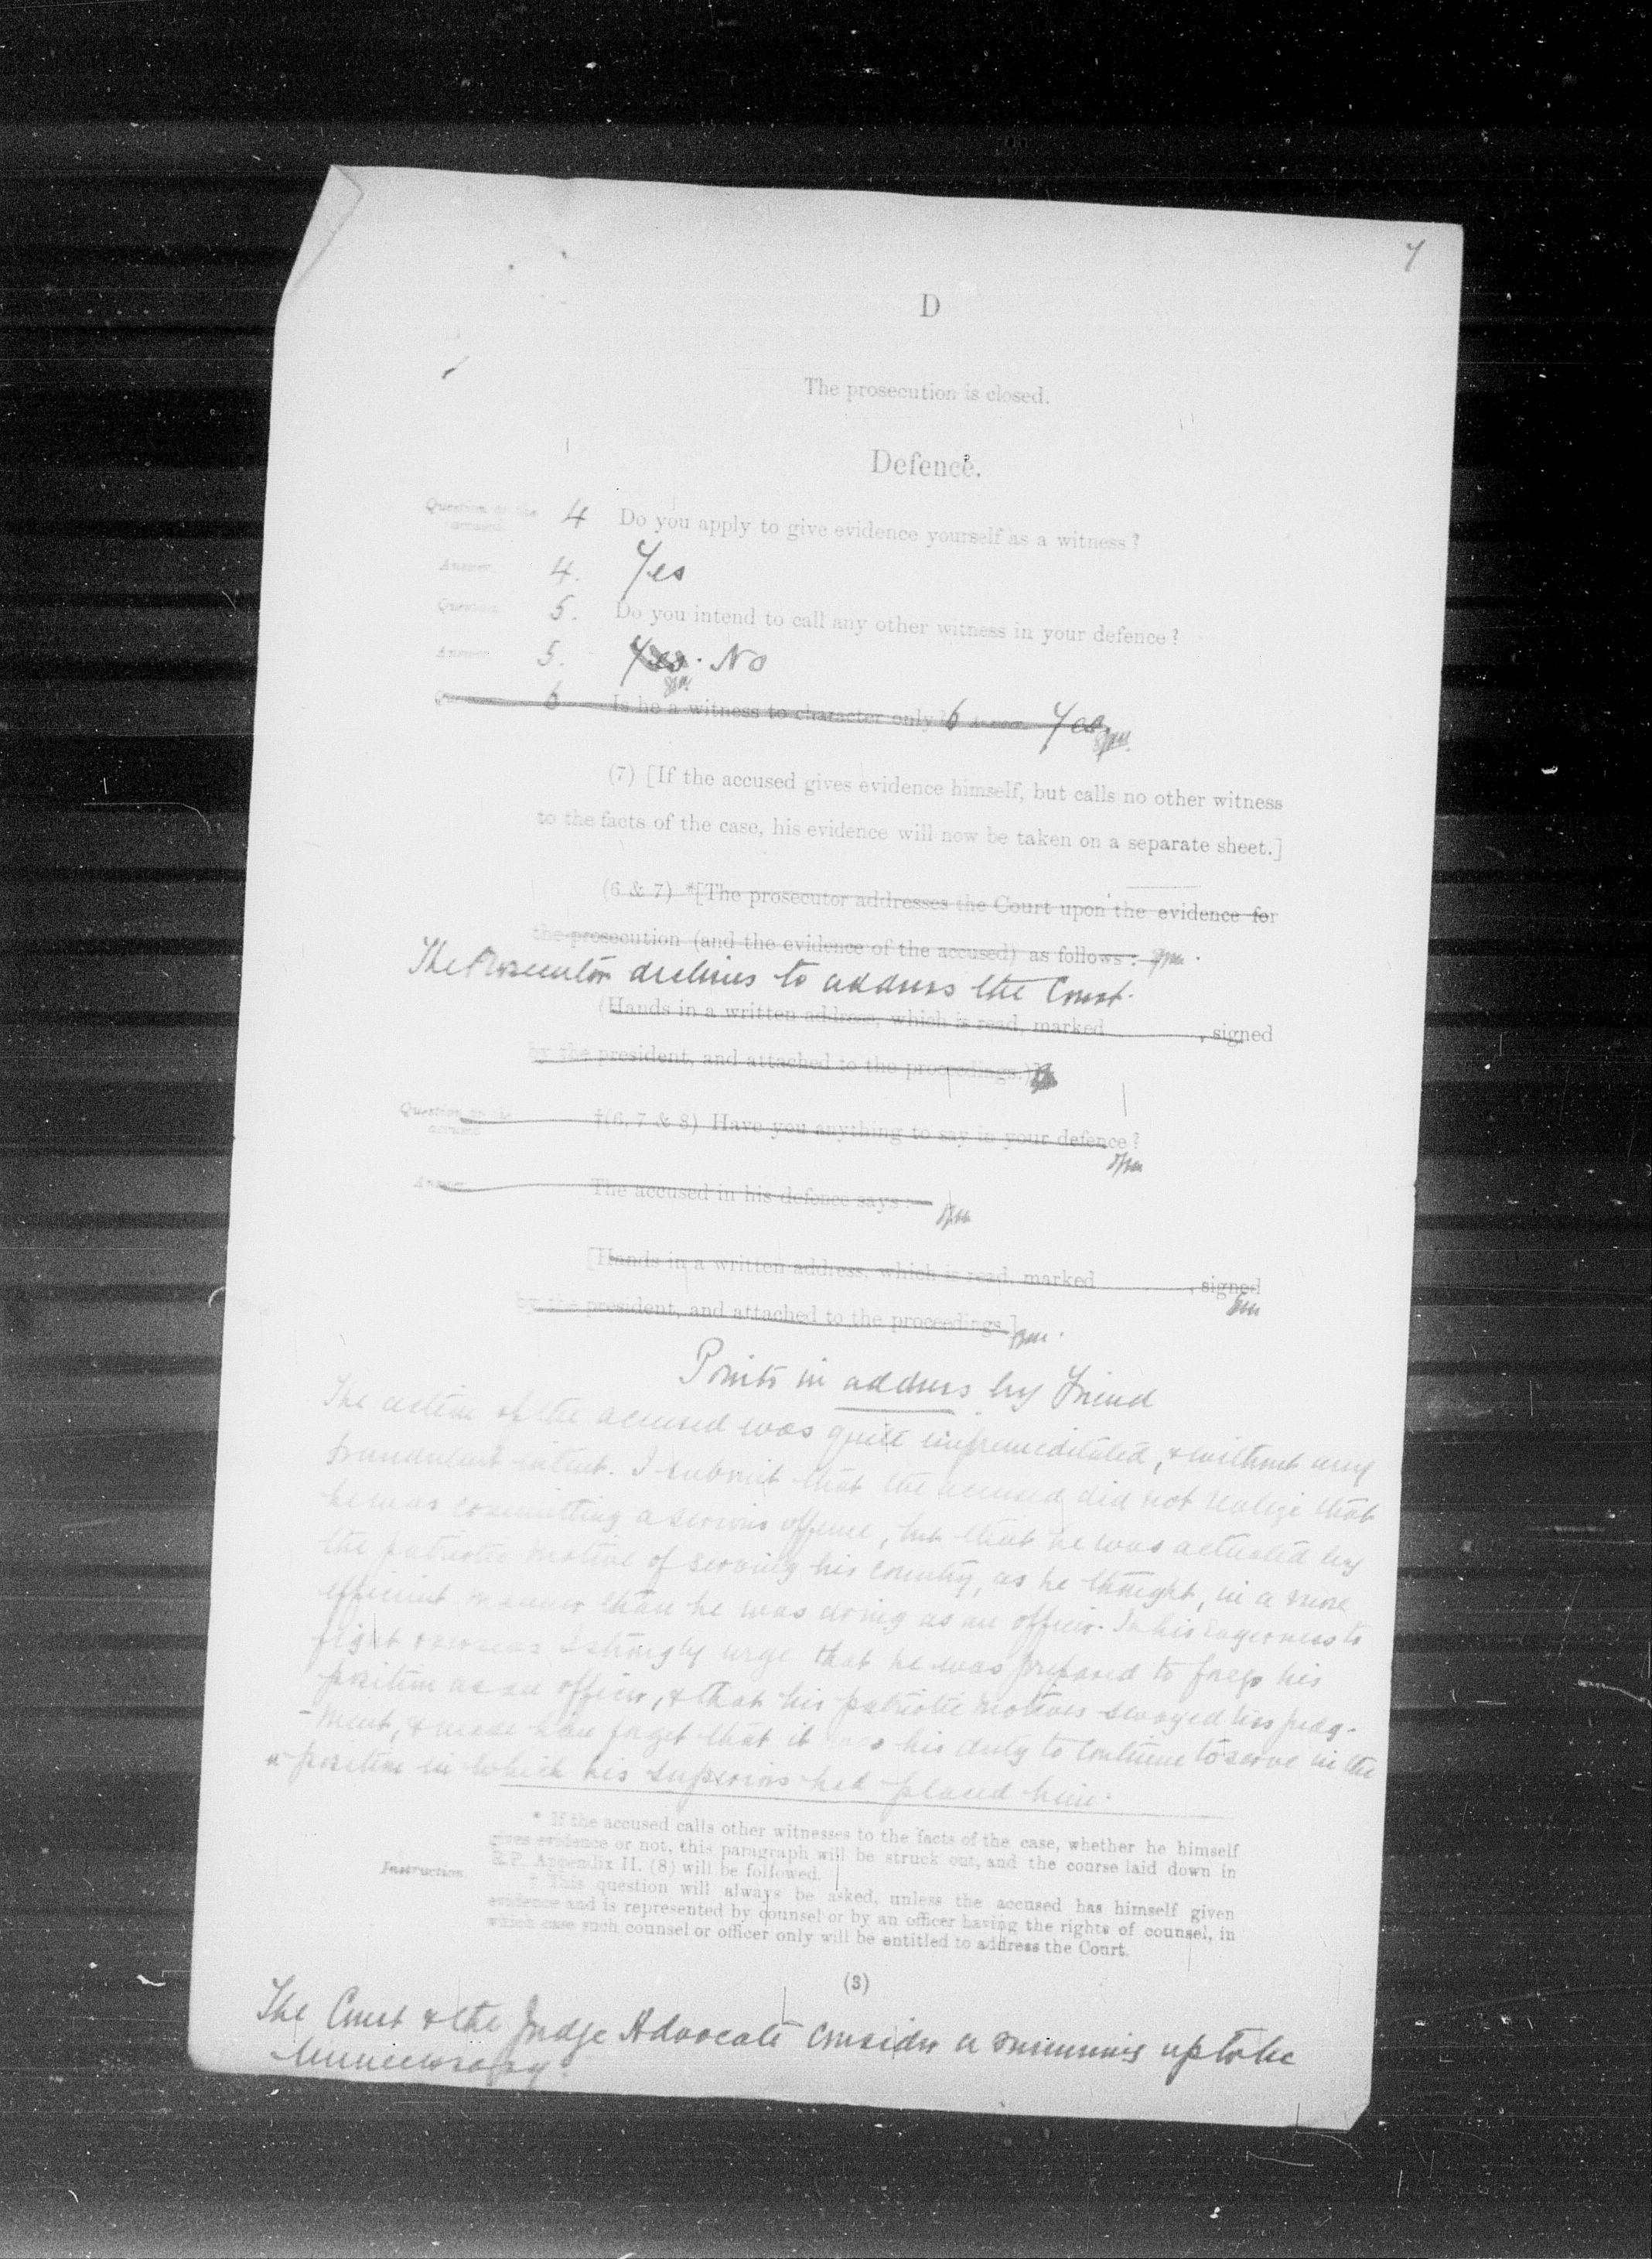 7
D
The prosecution is closed.
Defence.
Question to the accused. 4 Do you apply to give evidence yourself as a witness?
Answer. 4. Yes
Question 5. Do you intend to call any other witness in your defence?
Answer 5. Yes. No
6 Is he a witness to character only? 6 Answer Yes
(7) [If the accused gives evidence himself, but calls no other witness
to the facts of the case, his evidence will now be taken on a separate sheet.]
(6 & 7) *[The prosecutor addresses the Court upon the evidence for
the prosecution (and the evidence of the accused) as follows:—
The Prosecutor declines to address the Court.
(Hands in a written address, which is read, marked , signed
by the president, and attached to the proceedings.)]
Question to the accused. †(6, 7 & 8) Have you anything to say in your defence?
Answer The accused in his defence says:—
[Hands in a written address, which is read, marked , signed
by the president, and attached to the proceedings.]
Points in address by Friend
The action of the accused was quite unpremeditated, & without any
fraudulent intent. I submit that the accused did not realize that
he was committing a serious offence, but that he was actuated by
the patriotic motive of serving his country, as he thought, in a more
efficient manner than he was doing as an officer. In his eagerness to
fight overseas I strongly urge that he was prepared to forego his
position as an officer, & that his patriotic motives swayed his judg-
-ment, & made him forget that it was his duty to continue to serve in the
position in which his superiors had placed him.
* If the accused calls other witnesses to the facts of the case, whether he himself
gives evidence or not, this paragraph will be struck out, and the course laid down in
R.P. Appendix II. (8) will be followed.
Instruction
† This question will always be asked, unless the accused has himself given
evidence and is represented by counsel or by an officer having the rights of counsel, in
which case such counsel or officer only will be entitled to address the Court.
(3)
The Court & the Judge Advocate consider a summing up to be
unnecessary.